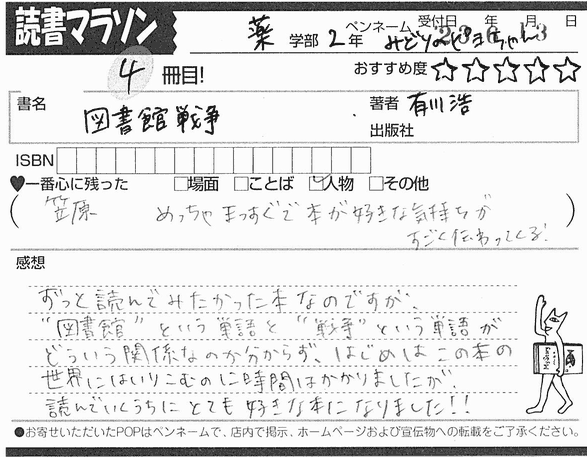 読書マラソン
薬 学部 2年 ペンネーム みどりの 受付日 年 月 日
4 冊目!
おすすめ度 ☆☆☆☆☆
書名 図書館戦争
著者 有川浩
出版社
ISBN
♥一番心に残った □場面 □ことば ☑人物 □その他
(笠原 めっちゃまっすぐで本が好きな気持ちが
すごく伝わってくる!)
感想
ずっと読んでみたかった本なのですが、
"図書館"という単語と"戦争"という単語が
どういう関係なのか分からず、はじめはこの本の
世界にはいりこむのに時間はかかりましたが、
読んでいくうちにとても好きな本になりました!!
●お寄せいただいたPOPはペンネームで、店内で掲示、ホームページおよび宣伝物への転載をご了承ください。